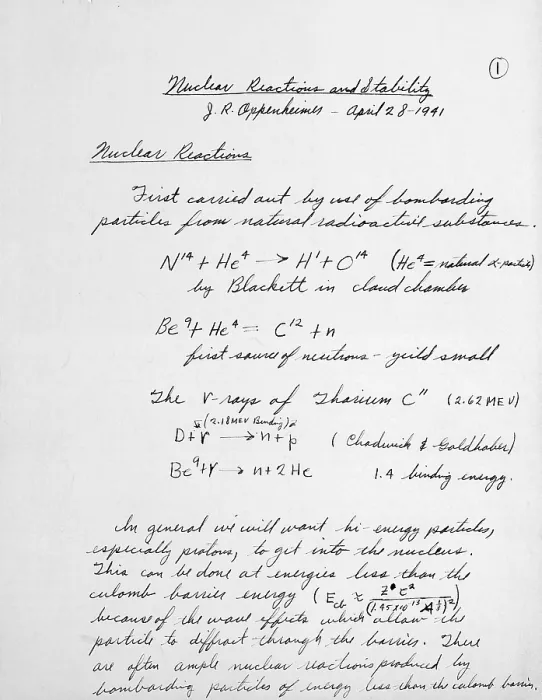 ①
Nuclear Reactions and Stability
J. R. Oppenheimer - April 28-1941
Nuclear Reactions
First carried out by use of bombarding
particles from natural radioactive substances.
N¹⁴ + He⁴ → H¹ + O¹⁴ (He⁴ = natural α-particle)
by Blackett in cloud chamber
Be⁹ + He⁴ = C¹² + n
first source of neutrons - yeild small
The γ-rays of Thorium C" (2.62 MEV)
(2.18 MEV Binding)
D + γ → n + p (Chadwick & Goldhaber)
Be⁹ + γ → n + 2He 1.4 binding energy.
In general we will want hi-energy particles,
especially protons, to get into the nucleus.
This can be done at energies less than the
culomb barrier energy
because of the wave effects which allow the
particle to diffract through the barrier. There
are often ample nuclear reactions produced by
bombarding particles of energy less than the culomb barrier.